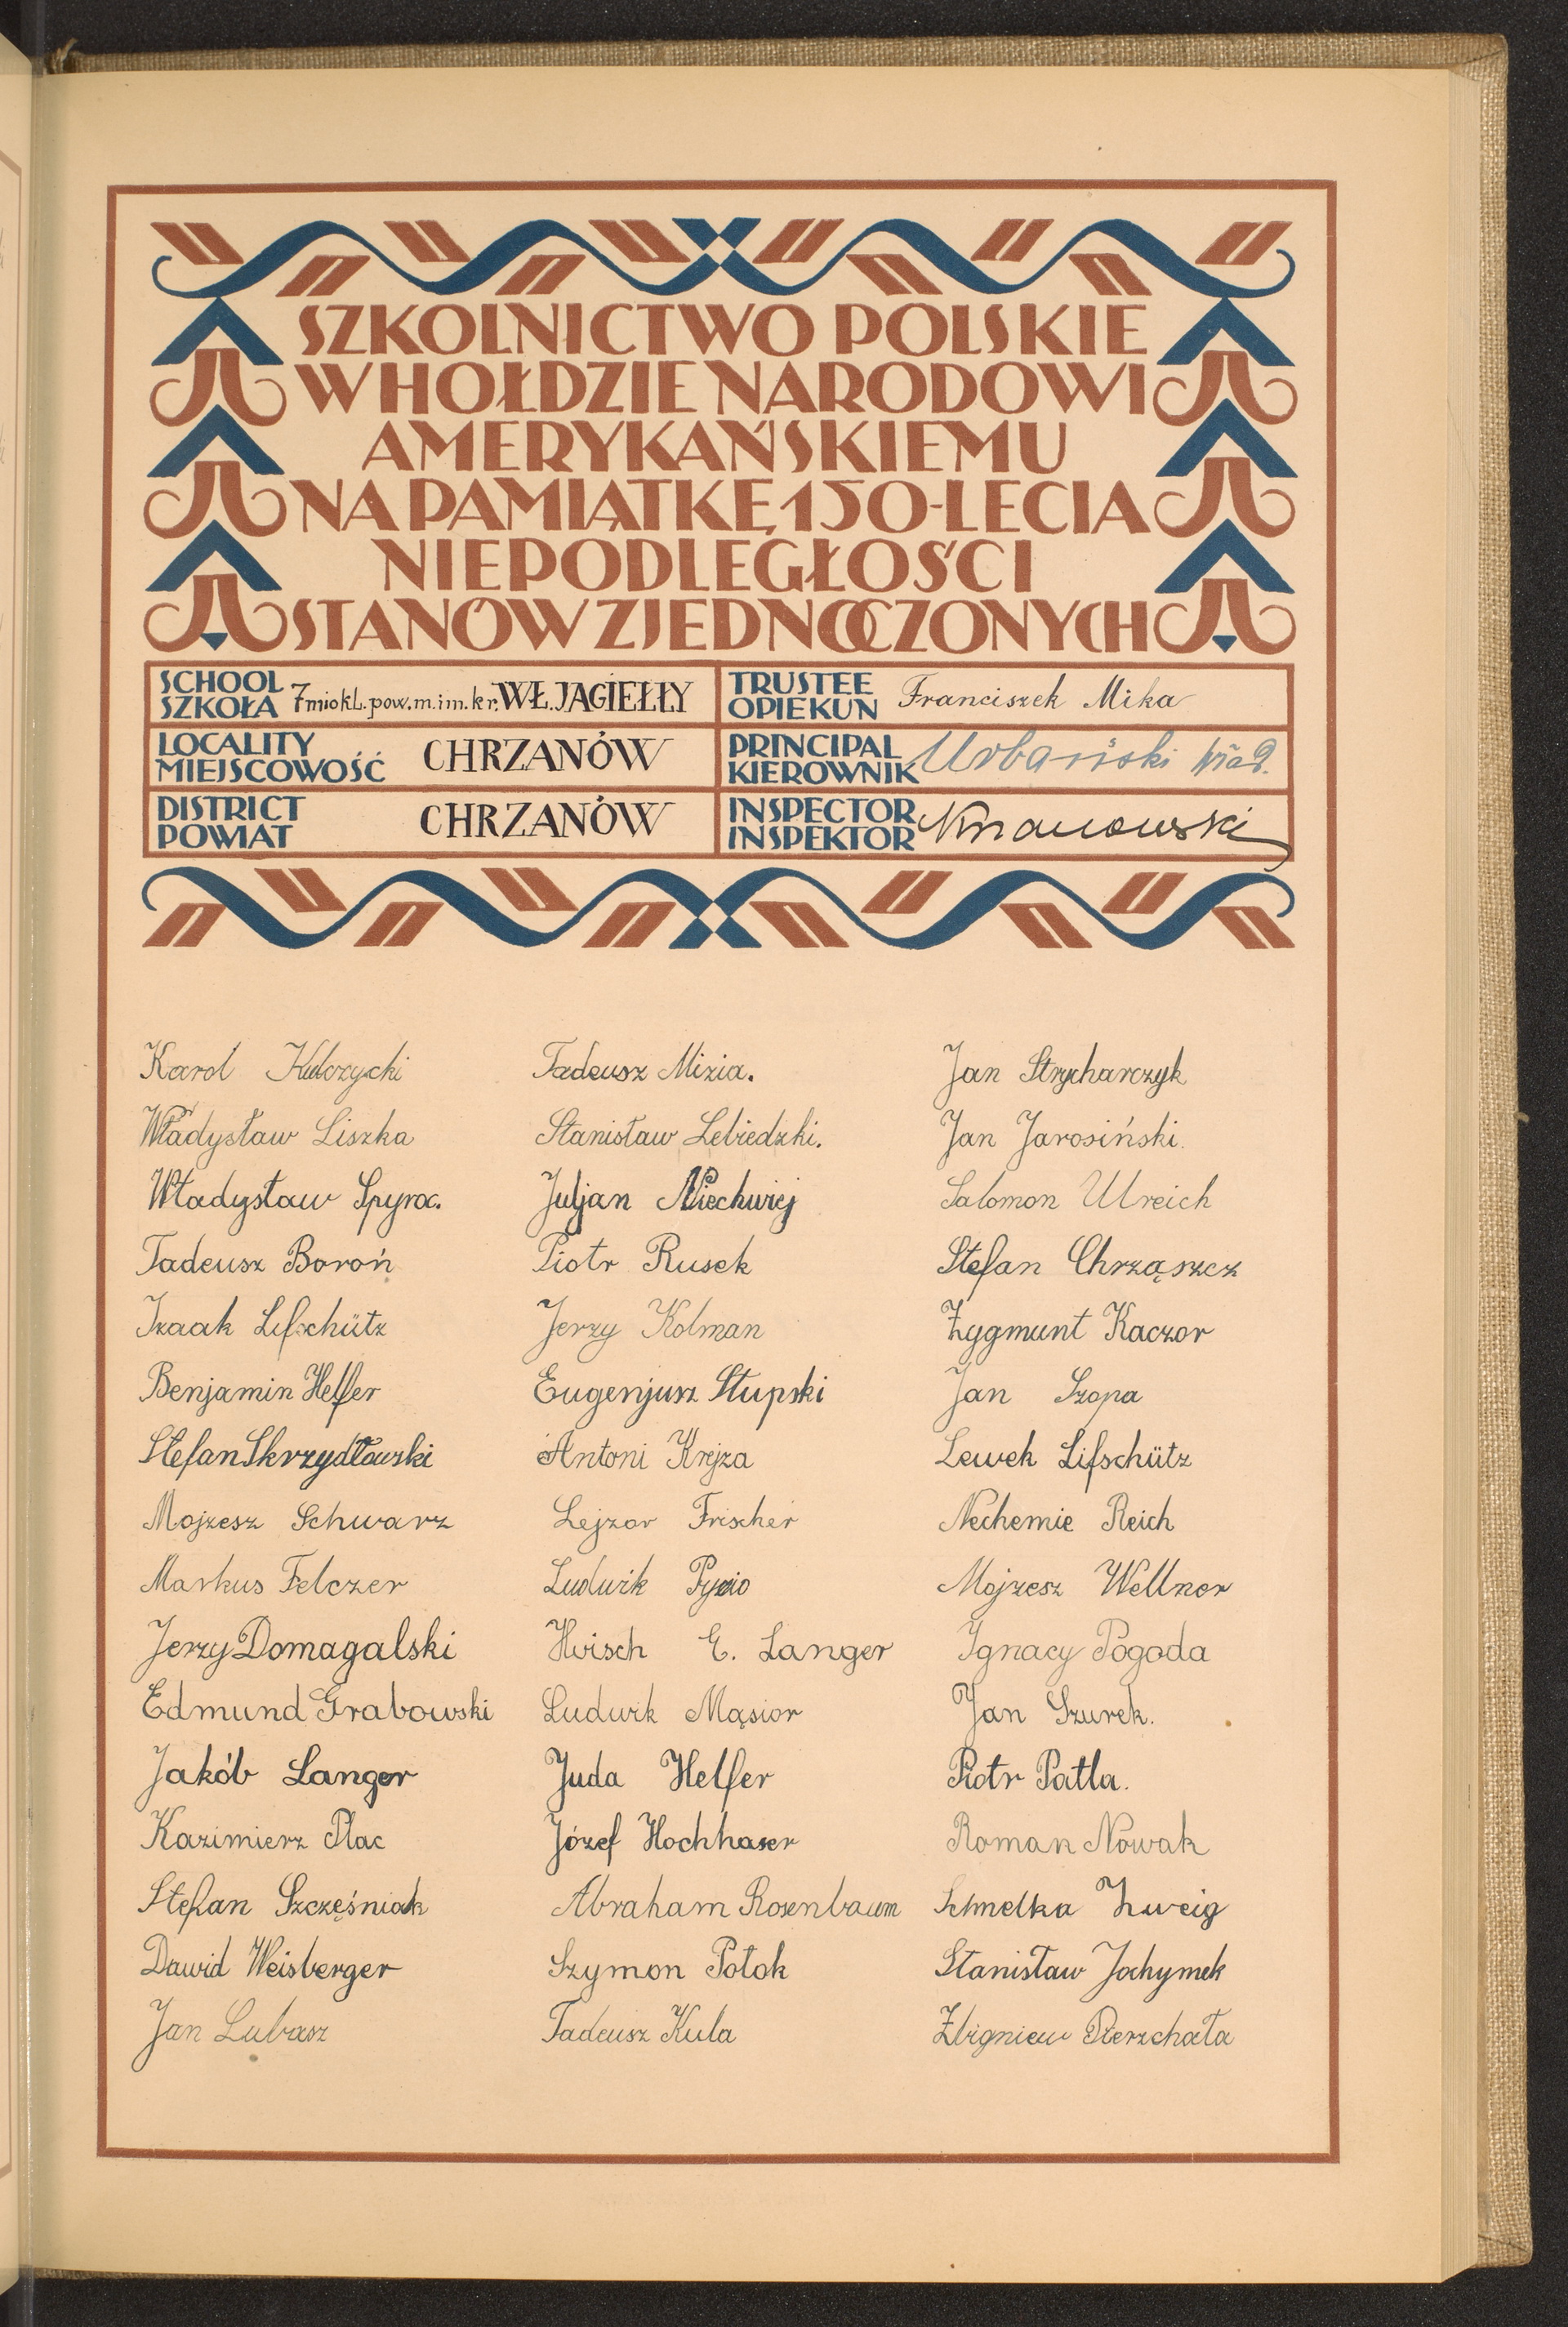 SZKOLNICTWO POLSKIE
W HOŁDZIE NARODOWI
AMERYKAŃSKIEMU
NA PAMIĄTKĘ 150-LECIA
NIEPODLEGŁOŚCI
STANÓW ZJEDNOCZONYCH
SCHOOL
SZKOŁA 7miokl.pow.m.im.kr.WŁ.JAGIEŁŁY
LOCALITY
MIEJSCOWOŚĆ CHRZANÓW
DISTRICT
POWIAT CHRZANÓW
TRUSTEE
OPIEKUN Franciszek Mika
PRINCIPAL
KIEROWNIK Urbański Wład.
INSPECTOR
INSPEKTOR
Karol Kulczycki
Władysław Liszka
Władysław Spyra.
Tadeusz Boroń
Izaak Lifschütz
Benjamin Helfer
Stefan Skrzydłowski
Mojzesz Schwarz
Markus Felczer
Jerzy Domagalski
Edmund Grabowski
Jakób Langer
Kazimierz Plac
Stefan Szcześniak
Dawid Weisberger
Jan Lubasz
Tadeusz Mizia.
Stanisław Lebiedzki.
Juljan Niechwiej
Piotr Rusek
Jerzy Kolman
Eugenjusz Słupski
Antoni Krejza
Lejzor Frischer
Ludwik
Hirsch E. Langer
Ludwik Mąsior
Juda Helfer
Józef Hochhaser
Abraham Rosenbaum
Szymon Potok
Tadeusz Kula
Jan Strycharczyk
Jan Jarosiński.
Salomon Ulreich
Stefan Chrząszcz
Zygmunt Kaczor
Jan Szopa
Lewek Lifschütz
Nechemie Reich
Mojzesz Wellner
Ignacy Pogoda
Jan Szurek.
Piotr Patla.
Roman Nowak
Schmelka Zweig
Stanisław Jochymek
Zbigniew Pierzchała